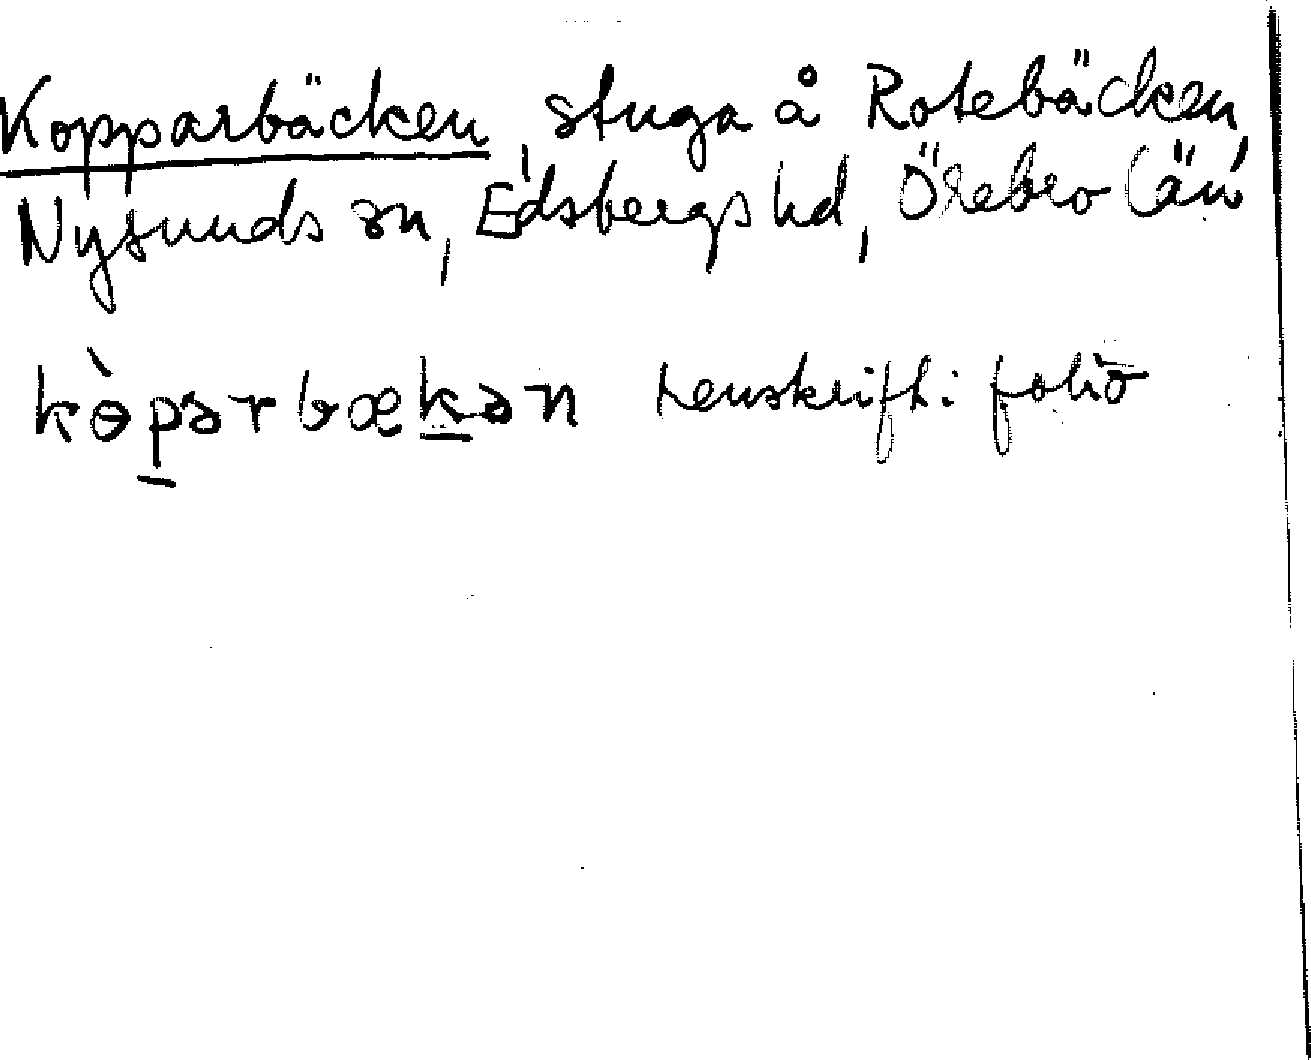 Kopparbäcken, stuga å Rotebäcken,
Nysunds sn, Edsbergs hd, Örebro län
kòparbækən renskrift: folio